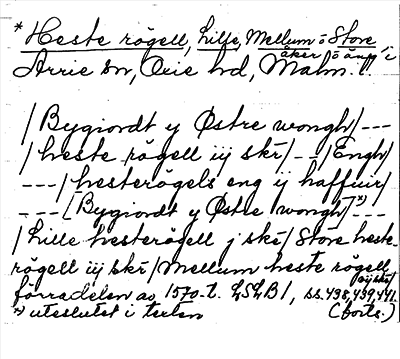 * Heste rögell, Lille, Mellum o Store
åker o äng, i
Arrie sn, Oxie hd, Malm. l.
/Bygiordt y Østre wongh/ ---
/heste rögell iij ski/ -- /Engh/
---/hesterögels eng ij haffuir/
---[/Bygiordt y Østre wongh/*) ---
/Lille hesterögell j ski/ Store heste-
rögell iij ski/ Mellum heste rögell
ij ski/
förradelen av 1570-t. LSLB 1, ss. 438, 439, 441.
*) uteslutet i texten (forts.)